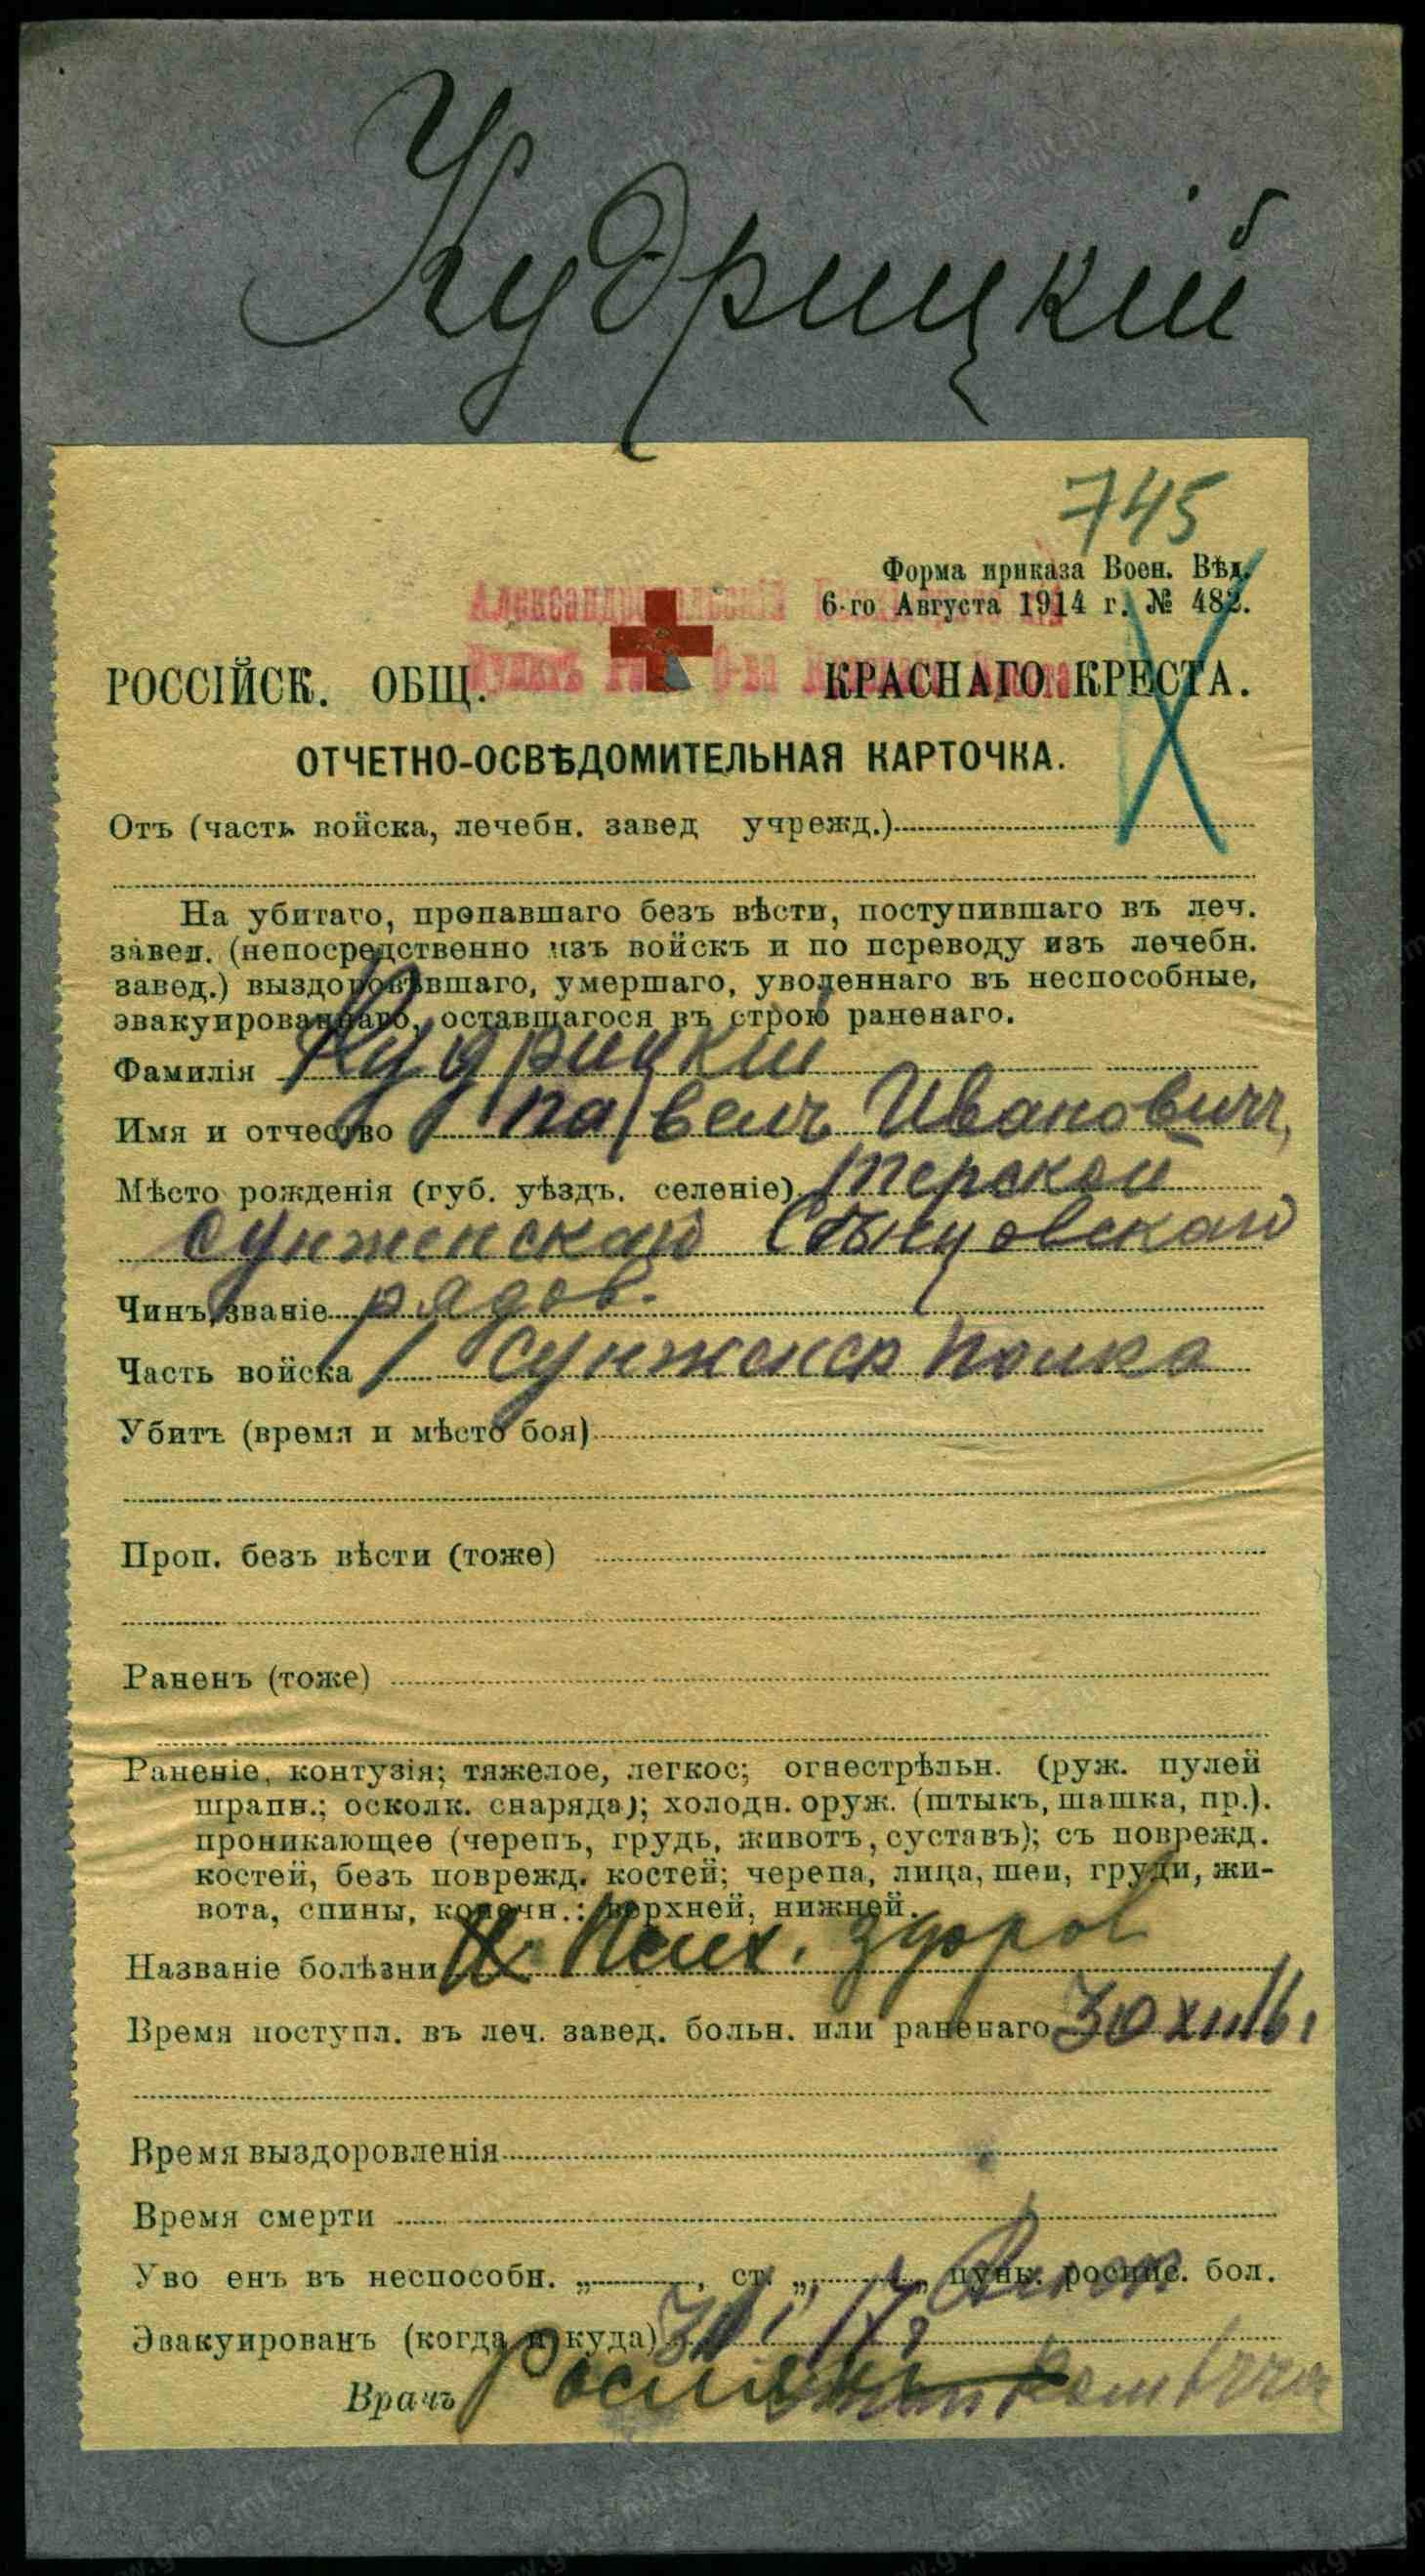 Кудрицкій
745
Форма приказа Воен. Вѣд.
6-го Августа 1914 г. № 482.
РОССІЙСК. ОБЩ. КРАСНАГО КРЕСТА.
ОТЧЕТНО-ОСВѢДОМИТЕЛЬНАЯ КАРТОЧКА.
Отъ (часть войска, лечебн. завед учрежд.)
На убитаго, пропавшаго безъ вѣсти, поступившаго въ леч.
завед. (непосредственно изъ войскъ и по переводу изъ лечебн.
завед.) выздоровѣвшаго, умершаго, уволеннаго въ неспособные,
эвакуированнаго, оставшагося въ строю раненаго.
Фамилія Кудрицкій
Имя и отчество Павелъ Ивановичъ
Мѣсто рожденія (губ. уѣздъ. селеніе) Терской
Сунженскаго
Чинъ, званіе рядов.
Часть войска Сунженск полка
Убитъ (время и мѣсто боя)
Проп. безъ вѣсти (тоже)
Раненъ (тоже)
Раненіе, контузія; тяжелое, легкос; огнестрѣльн. (руж. пулей
шрапн.; осколк. снаряда); холодн. оруж. (штыкъ, шашка, пр.).
проникающее (черепъ, грудь, животъ, суставъ); съ поврежд.
костей, безъ поврежд. костей; черепа, лица, шеи, груди, жи-
вота, спины, конечн.: верхней, нижней.
Названіе болѣзни Псих. здоров
Время поступл. въ леч. завед. больн. или раненаго 30 XII 16 г
Время выздоровленія
Время смерти
Уво енъ въ неспособн. „ , ст. „ „ пунк. роспис. бол.
Эвакуированъ (когда и куда)
Врачъ